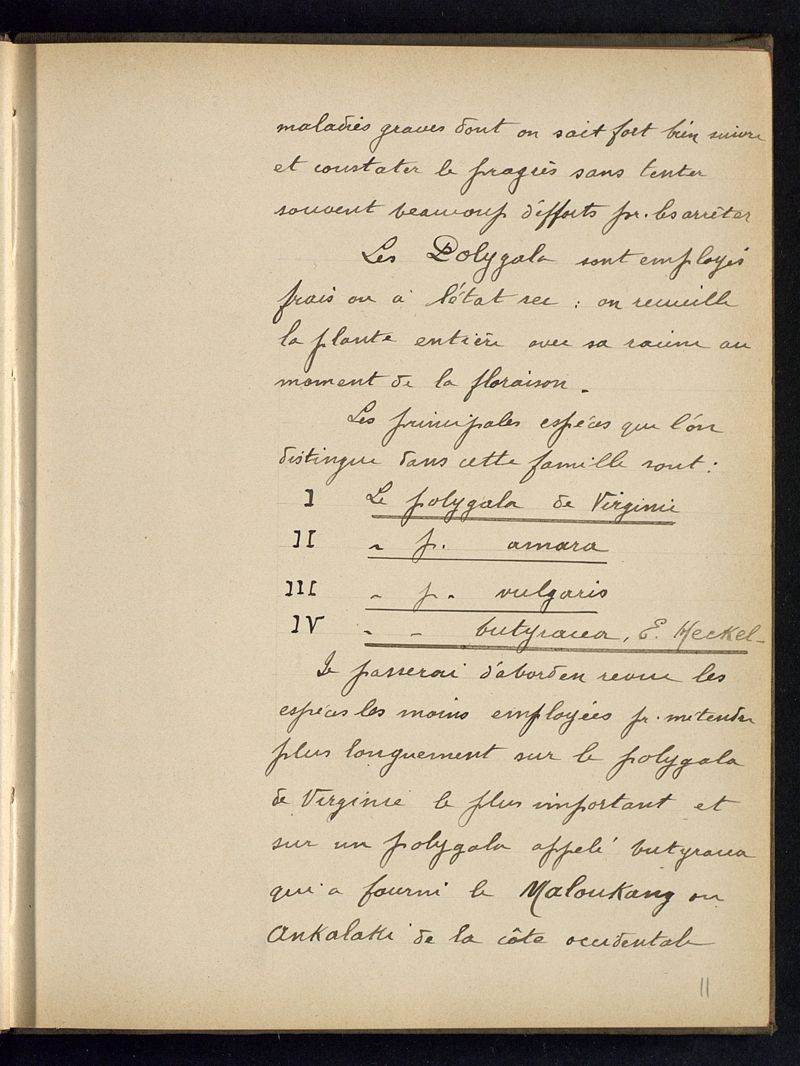 maladies graves dont on sait fort bien suivre
et constater le progrès sans tenter
souvent beaucoup d'efforts pr. les arrêter
Les Polygala sont employés
frais ou à l'état sec : on recueille
la plante entière avec sa racine au
moment de la floraison.
Les principales espèces que l'on
distingue dans cette famille sont :
I Le polygala de Virginie
II " p. amara
III " p. vulgaris
IV " - butyracea, E. Heckel -
Je passerai d'abord en revue les
espèces les moins employées pr. m'étendre
plus longuement sur le polygala
de Virginie le plus important et
sur un polygala appelé butyracea
qui a fourni le Maloukang ou
Ankalaki de la côte occidentale
11